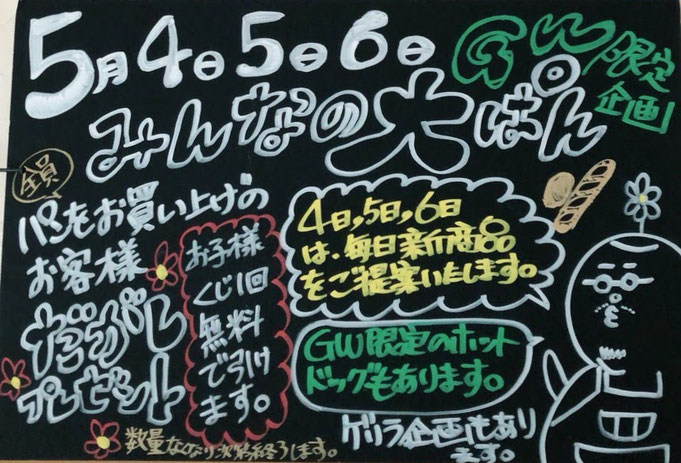 5月4日5日6日
GW限定
企画
みんなの大ぱん
全員
パンをお買い上げの
お客様
だがし
プレゼント
お子様
くじ1回
無料
で引け
ます。
4日,5日,6日
は、毎日新商品
をご提案いたします。
GW限定のホット
ドッグもあります。
ゲリラ企画もあり
ます。
数量なくなり次第終了します。